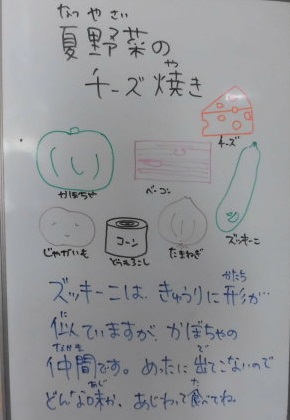 なつやさい
夏野菜の
や
チーズ焼き
チーズ
かぼちゃ
ベーコン
ズッキーニ
じゃがいも
コーン
とうもろこし
たまねぎ
かたち
ズッキーニは、きゅうりに形が
に
似ていますが、かぼちゃの
なかま
で
仲間です。めったに出てこないので
あじ
た
どんな味か、あじわって食べてね。